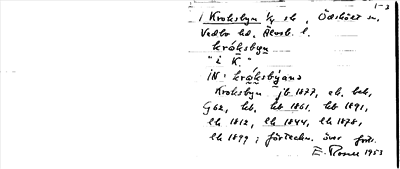 1-3
i Kroksbyn 1/4 sk, Ödskölt sn,
Vedbo hd, Älvsb. l.
króksbyn
"i K."
iN: króksbýans
Kroksbyn jb 1877, eb. bok,
G62, hb. hb 1861, hb 1891,
lh 1812, lh 1844, lh 1878,
lh 1899; förteckn. över
E. Rosell 1953